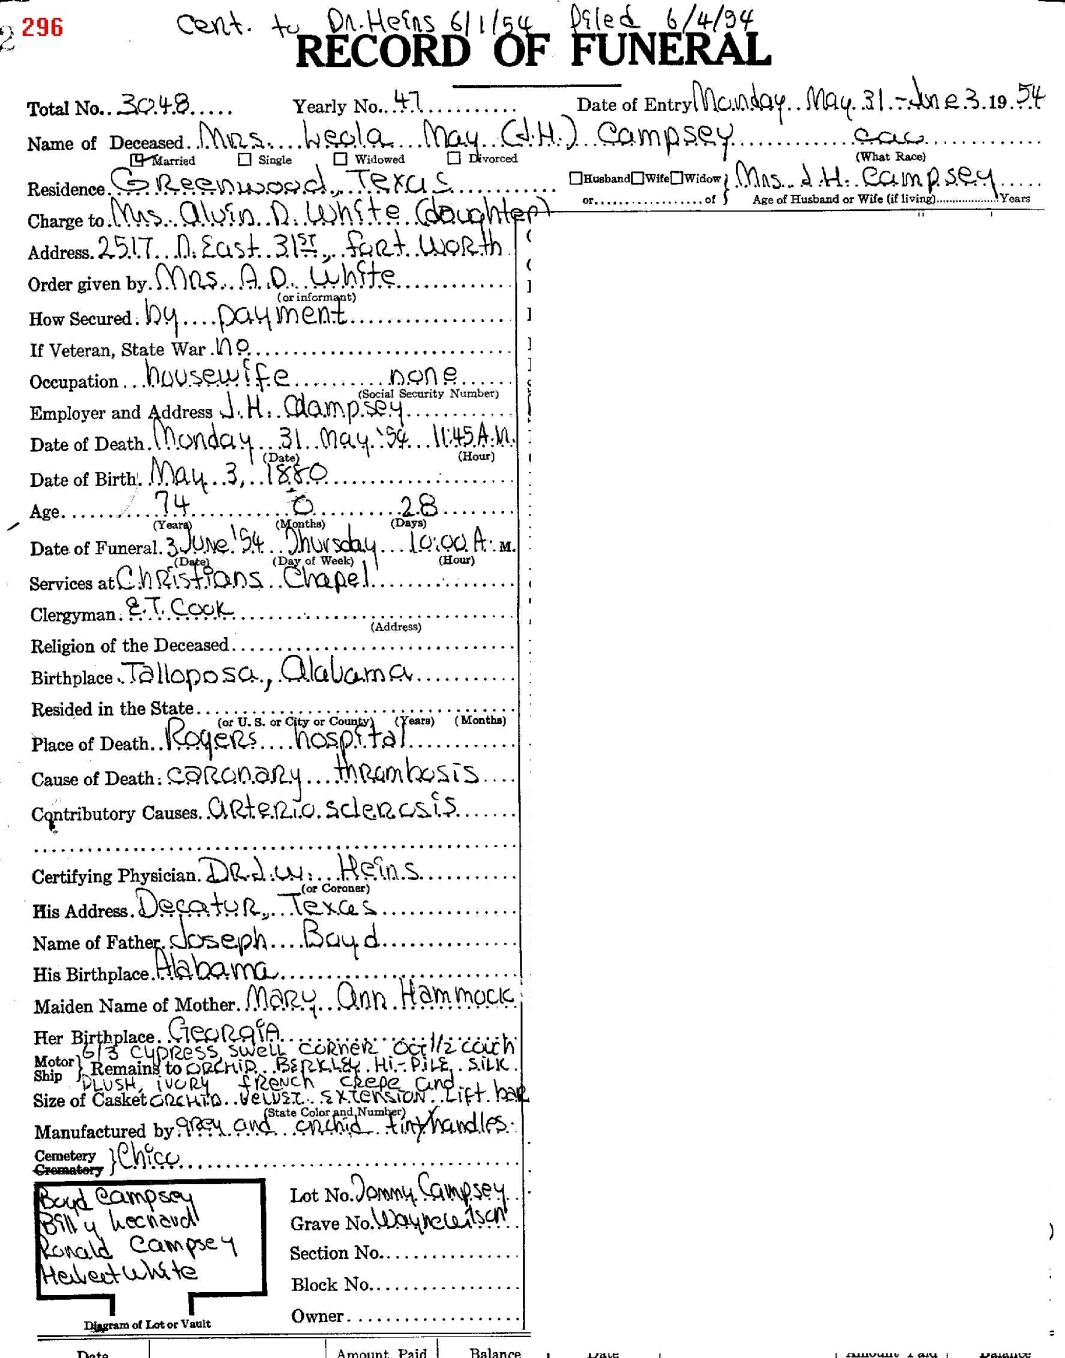 296 Cent. to Dr. Heins 6/1/54 Filed 6/4/94
RECORD OF FUNERAL
Total No. 3048 Yearly No. 47 Date of Entry Monday May 31 - June 3 19 54
Name of Deceased Mrs. Leola May (J.H.) Campsey cau
Married Single Widowed Divorced (What Race)
Residence Greenwood, Texas Husband Wife Widow Mrs. J.H. Campsey
or of Age of Husband or Wife (if living) Years
Charge to Mrs. Alvin D. White (daughter)
Address 2517 N. East 31st, Fort Worth
Order given by Mrs. A.D. White
(or informant)
How Secured by payment
If Veteran, State War no
Occupation housewife none
(Social Security Number)
Employer and Address J.H. Campsey
Date of Death Monday 31 May '54 11:45 A.M.
(Date) (Hour)
Date of Birth May 3, 1880
Age 74 0 28
(Years) (Months) (Days)
Date of Funeral 3 June '54 Thursday 10:00 A. M.
(Date) (Day of Week) (Hour)
Services at Christians Chapel
Clergyman E.T. Cook
(Address)
Religion of the Deceased
Birthplace Talloposa, Alabama
Resided in the State
(or U. S. or City or County) (Years) (Months)
Place of Death Rogers hospital
Cause of Death caronary thrombosis
Contributory Causes arterio sclerosis
Certifying Physician DR. J.W. Heins
(or Coroner)
His Address Decatur, Texas
Name of Father Joseph Boyd
His Birthplace Alabama
Maiden Name of Mother Mary Ann Hammock
Her Birthplace Georgia
6/3 cypress swell corner oct 1/2 couch
Motor Ship Remains to orchid Berkley Hi-pile silk
plush, ivory french crepe and
Size of Casket orchid velvet extension Lift bar
(State Color and Number)
Manufactured by grey and orchid tiny handles
Cemetery Crematory Chico
Boyd Campsey Lot No. Tommy Campsey
Billy Leonard Grave No. Wayne Wilson
Ronald Campsey Section No.
Herbert White Block No.
Diagram of Lot or Vault Owner
Date Amount Paid Balance Date Amount Paid Balance